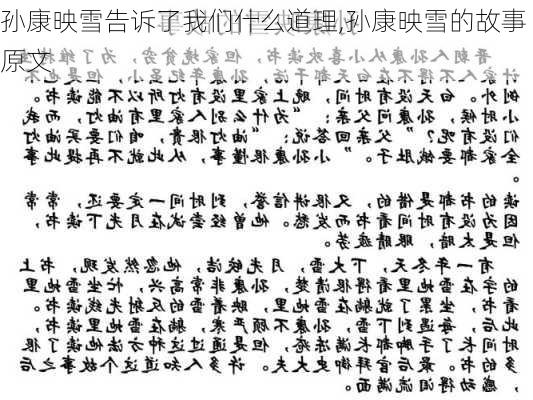 孙康映雪告诉了我们什么道理,孙康映雪的故事
原文
晋朝人孙康从小喜欢读书，但家境贫穷，为了维持生
计家人不得不在白天都干活，孙康年纪虽小，但是也不
例外。白天没有时间，晚上家里没有灯所以不能读书。
小时候，孙康问父亲：“为什么别人家里有油灯，而我
们没有呢？”父亲回答说：“油灯很贵，咱们要买油灯
全家都要饿肚子。”小孙康很懂事，从此就不再提此事
。
读的书都是借的，又很讲信誉，到时间一定要还，常常
因为没有时间看书而发愁。他曾经尝试在月光下读书，
但是太暗，眼睛疲劳。
有一年冬天，下大雪，月光皎洁，他忽然发现，书上
的字在雪地里看得很清楚，孙康非常高兴，忙坐雪地里
看书，坐累了就躺在雪地里，映着雪的反射光线读书。
此后，每遇到下雪，孙康不顾严寒，躺在雪地里读书，
时间长了手脚都长满冻疮，但是通过这种方法他读了很
多的书。最后官拜御史大夫。许多人知道这个故事之后
，感动得泪流满面。